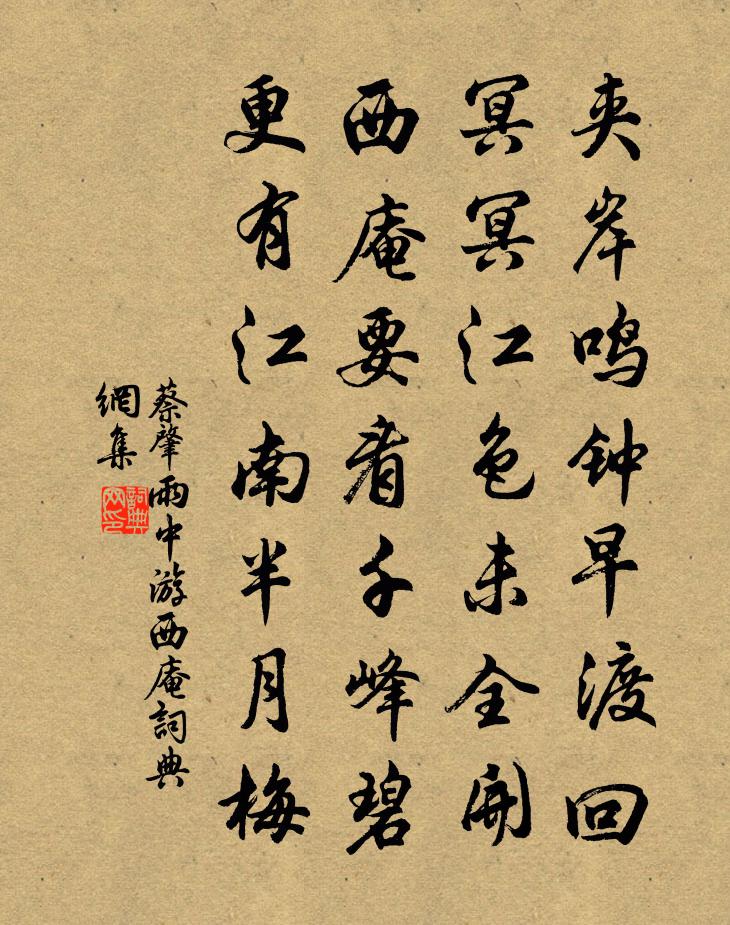 夹岸鸣钟早渡回
冥冥江色未全開
西庵要看千峰碧
更有江南半月梅
蔡肇雨中游西庵詞典
網集
詞典
网印